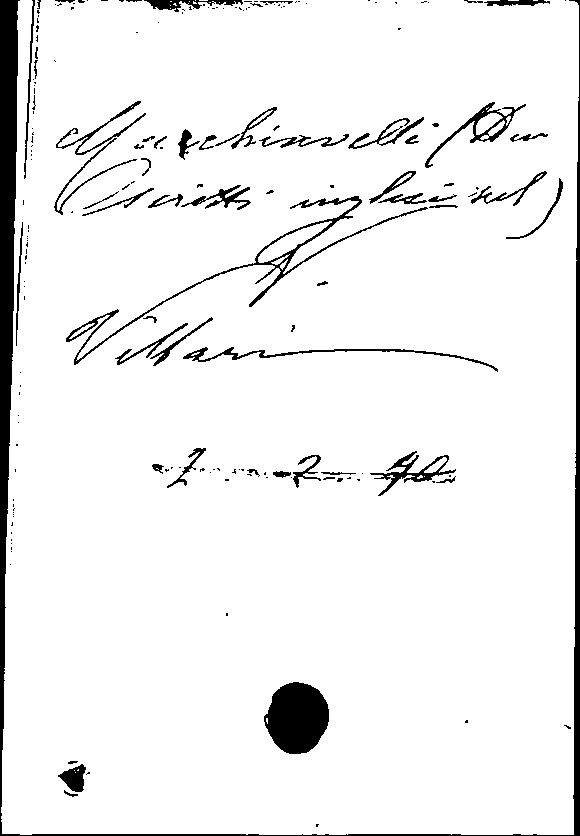 Macchiavelli (Due
Scritti inglesi sul)
V.
Villari
2 2 40